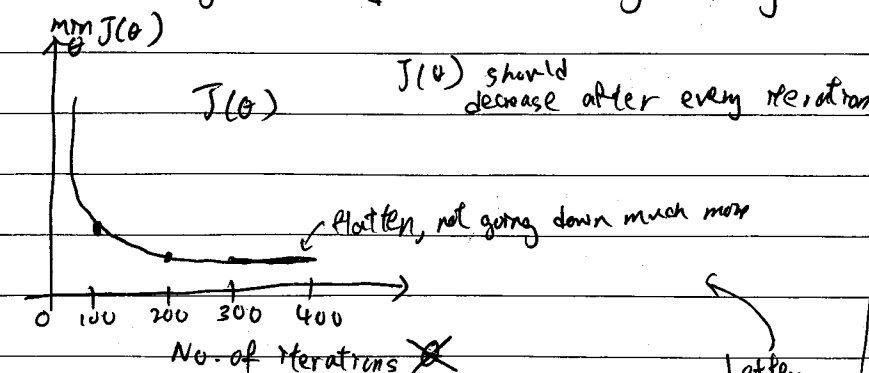 min J(θ)
θ
J(θ)
J(θ) should
decrease after every iteration
flatten, not going down much more
0 100 200 300 400
No. of iterations